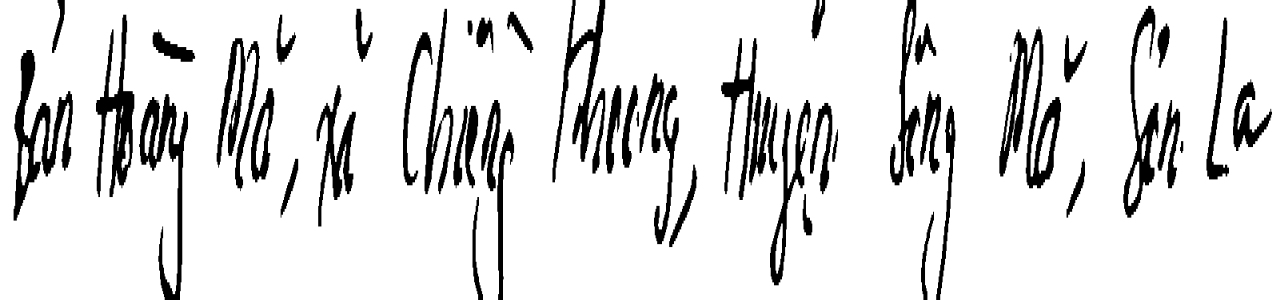 Bản Hoàng Mã, xã Chiềng Phung, Huyện Sông Mã, Sơn La